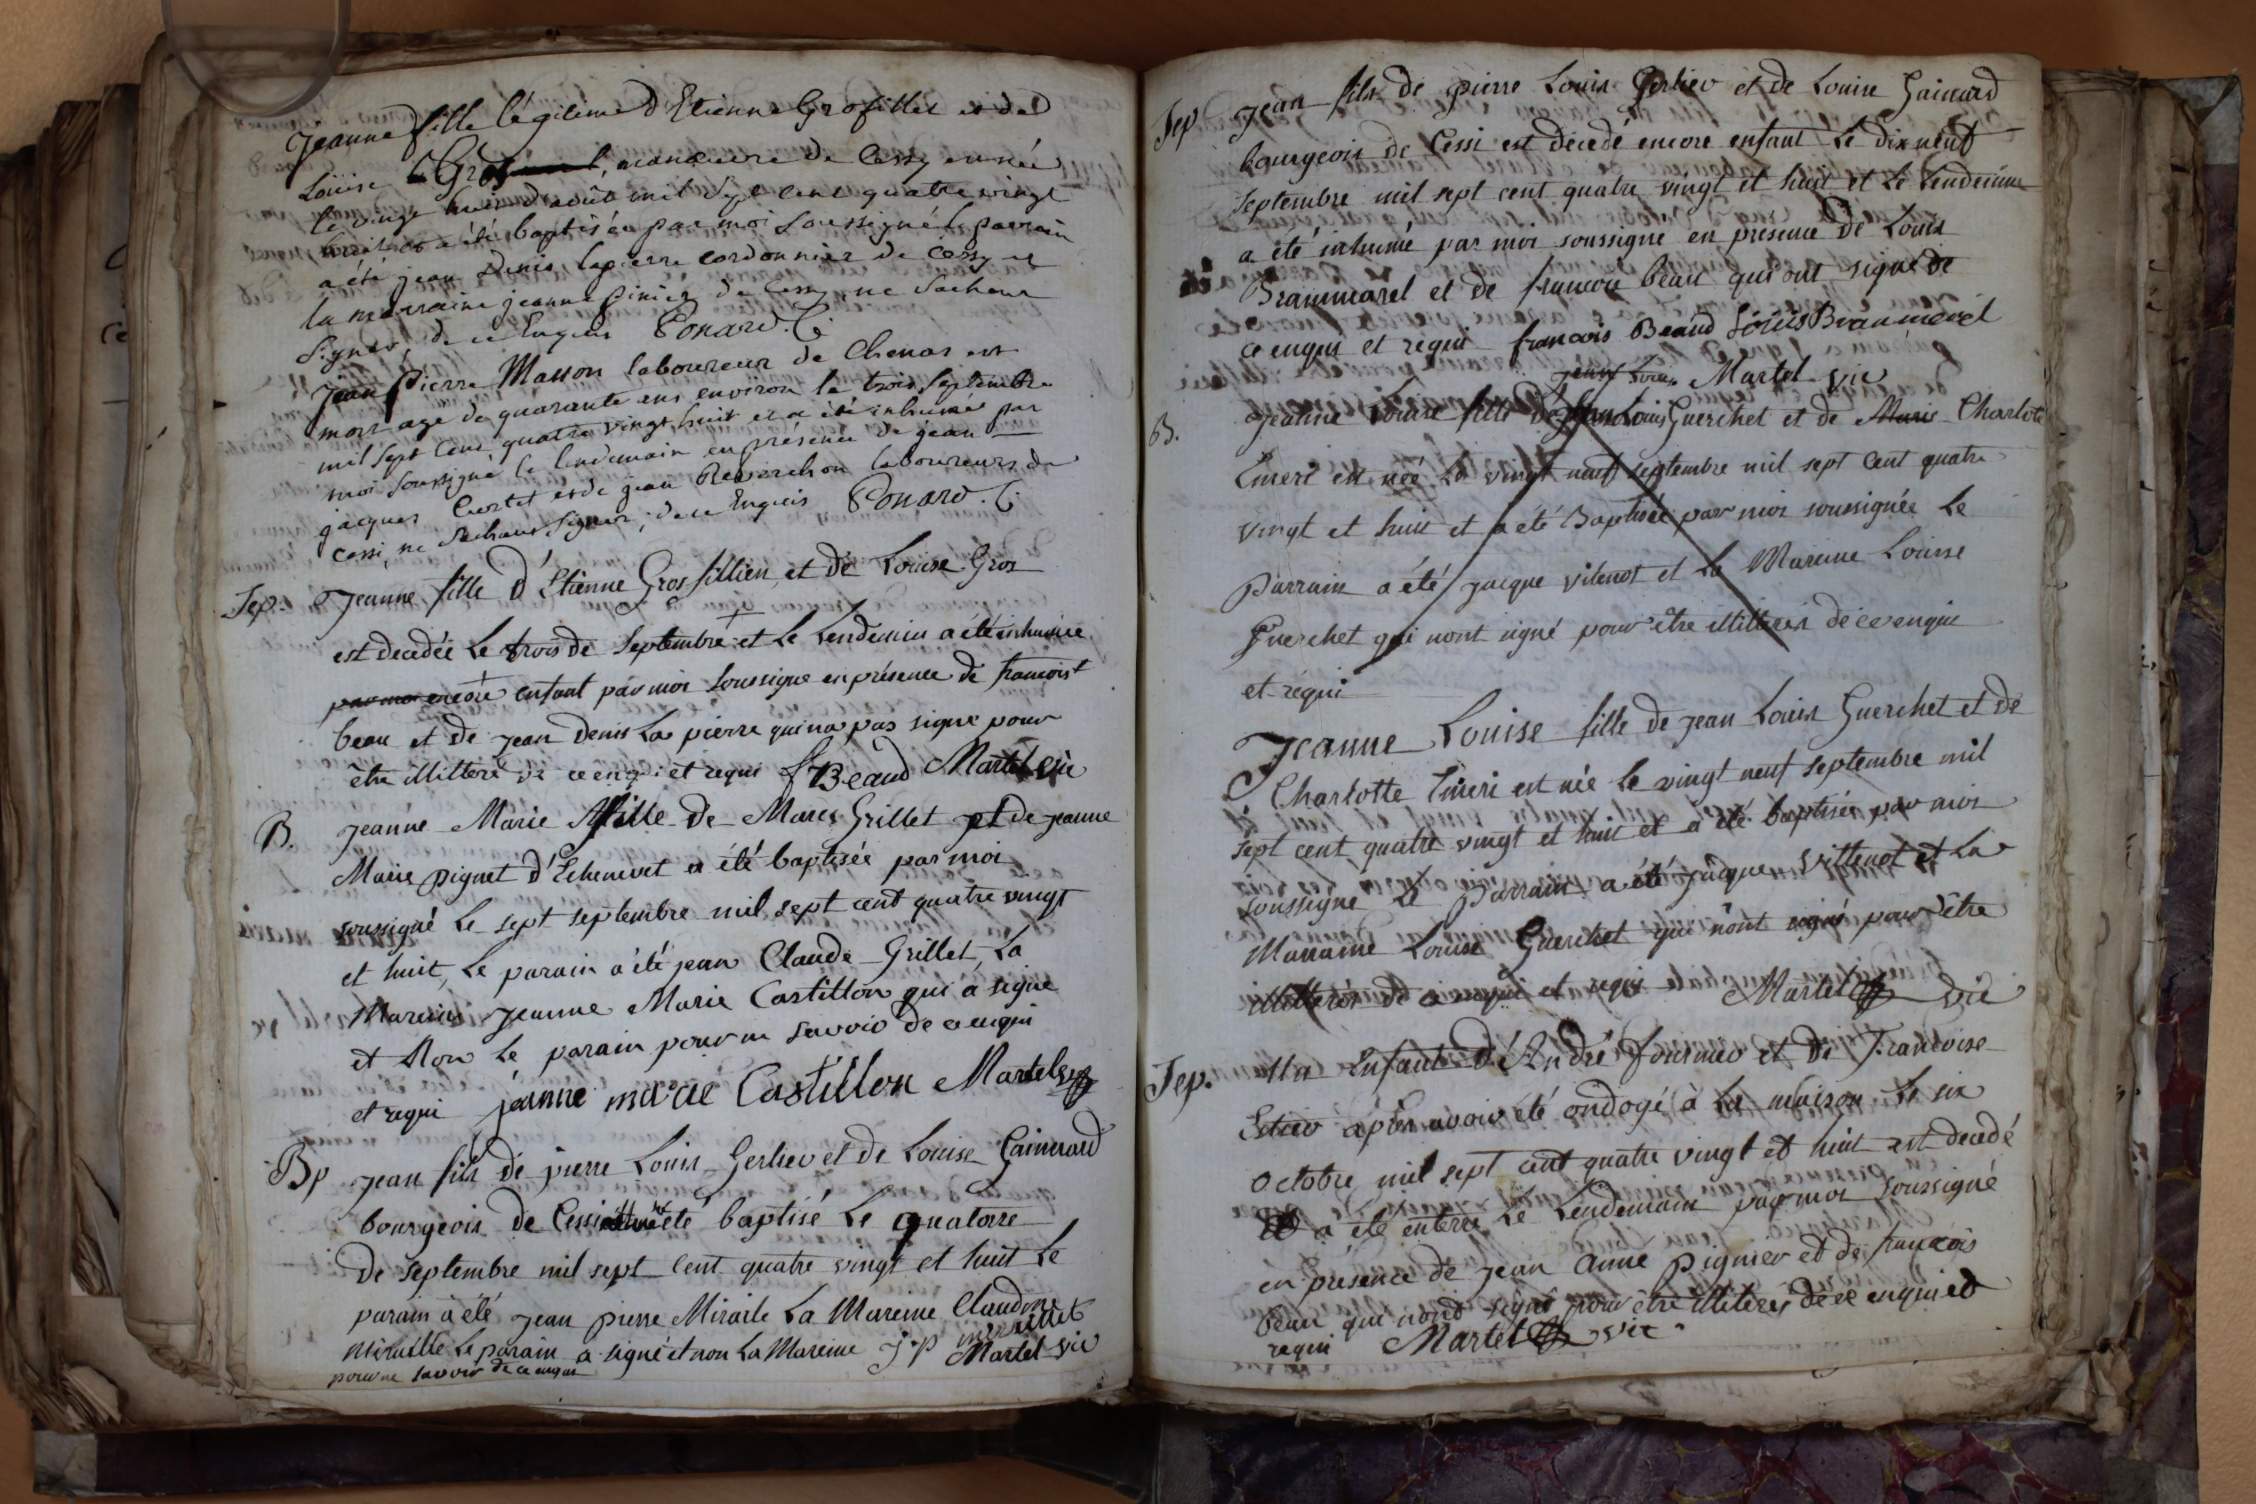 Jeanne fille légitime d'Etienne Grosfillet et de
Louise Gros, manœuvre de Cessy est née
le vingt huit août mil sept cent quatre vingt
huit et a été baptisée par moi soussigné le parrain
a été jean denis lapierre cordonnier de cessy et
la marraine jeanne pinier de Cessy, ne sachant
signer, de ce Enquis Ponard. C.
Jean Pierre Masson laboureur de Chenas est
mort age de quarante ans environ le trois septembre
mil sept cent quatre vingt huit et a été inhumé par
moi soussigné le lendemain en présence de jean
jacques Curtet et de jean Reverchon laboureurs de
Cessi, ne sachant signer, de ce Enquis Ponard. C.
Sep. Jeanne fille d'Etienne Grosfillien et de Louise Gros
est decedée Le trois de Septembre et Le Lendemin a été enhumée
par moi encore enfant par moi soussigne en présence de francois
beau et de jean denis La pierre qui na pas signe pour
être illitteré de ce enqui et requi f Beaud Martel vic
B. Jeanne Marie fille de Marcs Grillet et de jeanne
Marie pignet d'Echenevet a été baptisée par moi
soussigné Le sept septembre mil sept cent quatre vingt
et huit, Le parain a été jean Claude Grillet, La
Mareine Jeanne Marie Castillon qui a signe
et Non Le parain pour ne savoir de ce enqui
et requi jeanne marie Castillon Martel vic
Bp Jean fils de pierre Louis Gerlier et de Louise Gaimard
bourgeois de Cessi été baptisé Le quatorze
de septembre mil sept cent quatre vingt et huit Le
parain a été Jean pierre Miraile La Mareine Claudine
Miraille Le parain a signé et non La Mareine J.p miraillet
pour ne savoir de ce enquis Martel vic
Sep Jean fils de pierre Louis Gerlier et de Louise Gaimard
bourgeois de Cessi est décedé encore enfant Le dix neuf
Septembre mil sept cent quatre vingt et huit et Le Lendemin
a été inhumé par moi soussigne en présence de Louis
Brammarel et de francois beau qui ont signé de
ce enquis et requi francois Beaud Louis Brammerel
Jean Louis Martel vic
B. Jeanne Louise fille de Jean Louis Guerchet et de Marie Charlote
Emeri est née Le vingt neuf septembre mil sept cent quatre
vingt et huit et a été Baptisée par moi soussignée Le
Parrain a été jacque vitenot et La Mareine Louise
Guerchet qui nont signé pour être illitterés de ce enquie
et requi
Jeanne Louise fille de Jean Louis Guerchet et de
Charlotte Emeri est née Le vingt neuf septembre mil
sept cent quatre vingt et huit et a été baptisée par moi
soussigne Le Parrain a été jacque Vittenot et La
Marraine Louise Guerchet qui nont signé pour être
illitterés de ce enqui et requi Martel vic
Sep. Un Enfant d'André fournier et de Francoise
Estier après avoir été ondogé à La maison Le six
Octobre mil sept cent quatre vingt et huit est decedé
et a été enterré Le Lendemain par moi soussigné
en presence de Jean Anne Pignier et de francois
beau qui nond signé pour être illiterés de ce enqui et
requi Martel vic